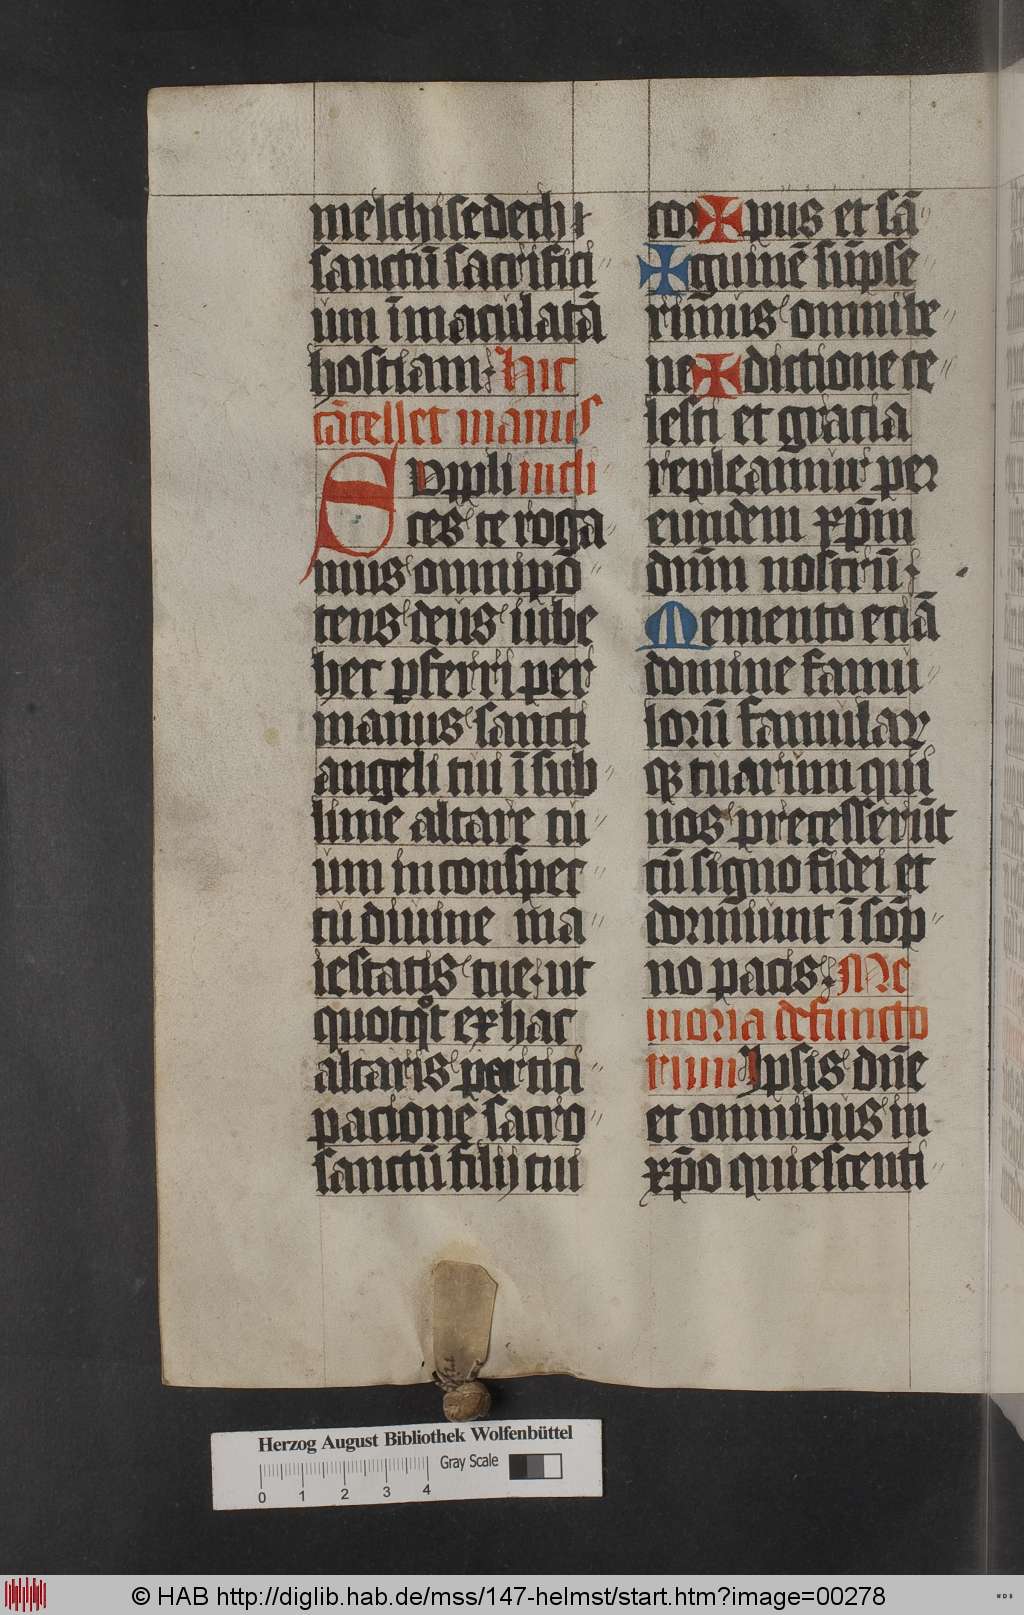 melchisedech·
sanctū sacrifici
um īmaculatā
hostiam· Hic
cācellet manus
Suppli incli
ces te roga
mus omnipō
tens deus iube
hec pferri per
manus sancti
angeli tui ī sub
lime altare tu
um in conspec
tu diuine ma
iestatis tue· ut
quotqͦt ex hac
altaris partici
pacione sacro
sanctū filij tui
cor✠pus et sā
✠guinē sūpse
rim̄us omni be
ne✠dictione ce
lesti et gracia
repleamur per
eundem xp̄m
dnm̄ nostrū·
Memento eciā
domine famu
lorū famular
qȝ tuarum qui
nos precesserūt
cū signo fidei et
dormiunt ī som̄p
no pacis· Me
moria defuncto
rum Ipsis dn̄e
et omnibus in
xp̄o quiescenti
Herzog August Bibliothek Wolfenbüttel
Gray Scale
0 1 2 3 4
© HAB http://diglib.hab.de/mss/147-helmst/start.htm?image=00278